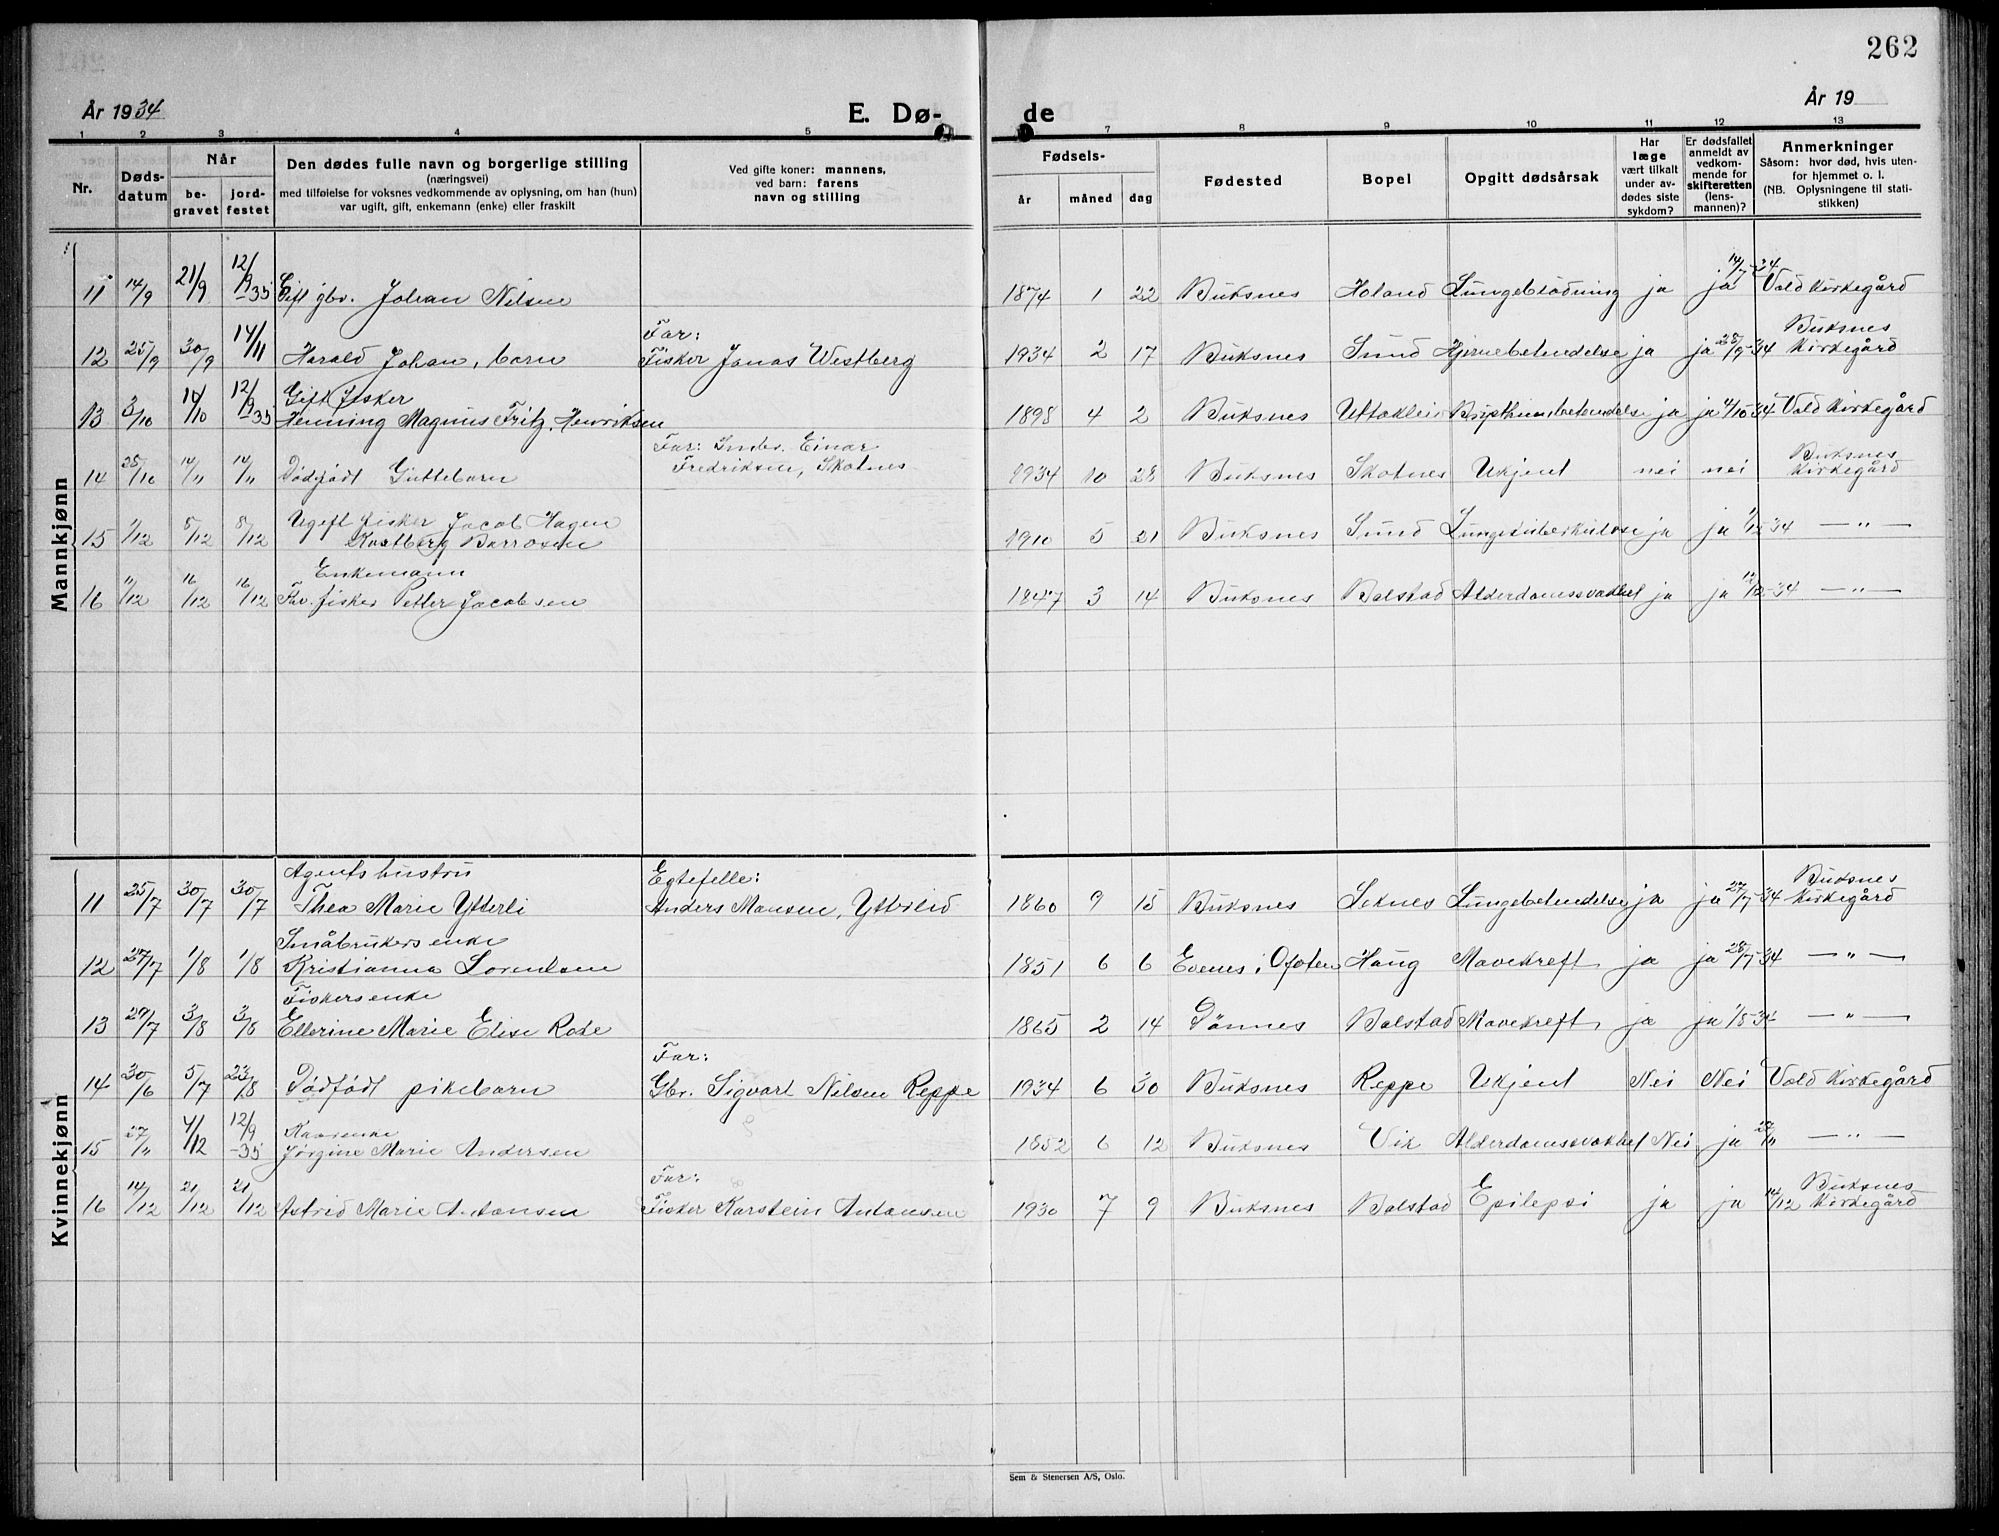 262
År 1934
E. Dø-
de
År 19
1 2 3 4 5 7 8 9 10 11 12 13
Nr.
Døds-
datum
Når
be-
gravet
jord-
festet
Den dødes fulle navn og borgerlige stilling
(næringsvei)
med tilføielse for voksnes vedkommende av oplysning, om han (hun)
var ugift, gift, enkemann (enke) eller fraskilt
Ved gifte koner: mannens,
ved barn: farens
navn og stilling
Fødsels-
år
måned
dag
Fødested
Bopel
Opgitt dødsårsak
Har
læge
vært tilkalt
under av-
dødes siste
sykdom?
Er dødsfallet
anmeldt av
vedkom-
mende for
skifteretten
(lens-
mannen)?
Anmerkninger
Såsom: hvor død, hvis uten-
for hjemmet o. l.
(NB. Oplysningene til stati-
stikken)
Mannkjønn
11 14/9 21/9 12/9-35 Gift gbr. Johan Nilsen 1874 1 22 Buksnes Holand Lungeblødning ja ja 14/9-34 Vold Kirkegård
Far: Buksnes
12 25/9 30/9 14/11 Harald Johan, barn Fisker Jonas Westberg 1934 2 17 Buksnes Sund Hjernebetendelse ja ja 28/9-34 Kirkegård
Gift fisker
13 3/10 14/10 12/9-35 Henning Magnus Fritz Henriksen 1898 4 2 Buksnes Uttakleiv betendelse ja ja 4/10-34 Vold Kirkegård
Far: Småbr. Einar Buksnes
14 28/10 14/11 14/11 Dødfødt Guttebarn Fredriksen, Skotnes 1934 10 28 Buksnes Skotnes Ukjent nei nei Kirkegård
Ugift fisker Jacob Hagen
15 1/12 8/12 8/12 Kvatberg Barrosen 1910 5 21 Buksnes Sund Lungetuberkulose ja ja 1/12-34 — " —
Enkemann
16 11/12 16/12 16/12 Fhv. fisker Petter Jacobsen 1847 3 14 Buksnes Balstad Alderdomssvakhet ja ja 12/12-34 — " —
Kvinnekjønn
Agents hustru Egtefelle: Buksnes
11 25/7 30/7 30/7 Thea Marie Ytterli Anders Mansen, Ytterlid 1860 9 15 Buksnes Leknes Lungebetendelse ja ja 27/7-34 Kirkegård
Småbrukers enke
12 27/7 1/8 1/8 Kristianna Lorentsen 1851 6 6 Evenes i Ofoten Haug Mavekreft ja ja 28/7-34 — " —
Fiskers enke
13 29/7 3/8 3/8 Ellerine Marie Elise Rode 1865 2 14 Dønnes Balstad Mavekreft ja ja 1/8-34 — " —
Far:
14 30/6 5/7 23/8 Dødfødt pikebarn Gbr. Sigvart Nilsen Reppe 1934 6 30 Buksnes Reppe Ukjent Nei Nei Vold Kirkegård
Kaarenke
15 27/11 4/12 12/9-35 Jørgine Marie Andersen 1852 6 12 Buksnes Vik Alderdomssvakhet Nei ja 28/11 — " —
Far: Buksnes
16 14/12 21/12 21/12 Astrid Marie Antonsen Fisker Karstein Antonsen 1930 7 9 Buksnes Balstad Epilepsi ja ja 14/12 Kirkegård
Sem & Stenersen A/S, Oslo.